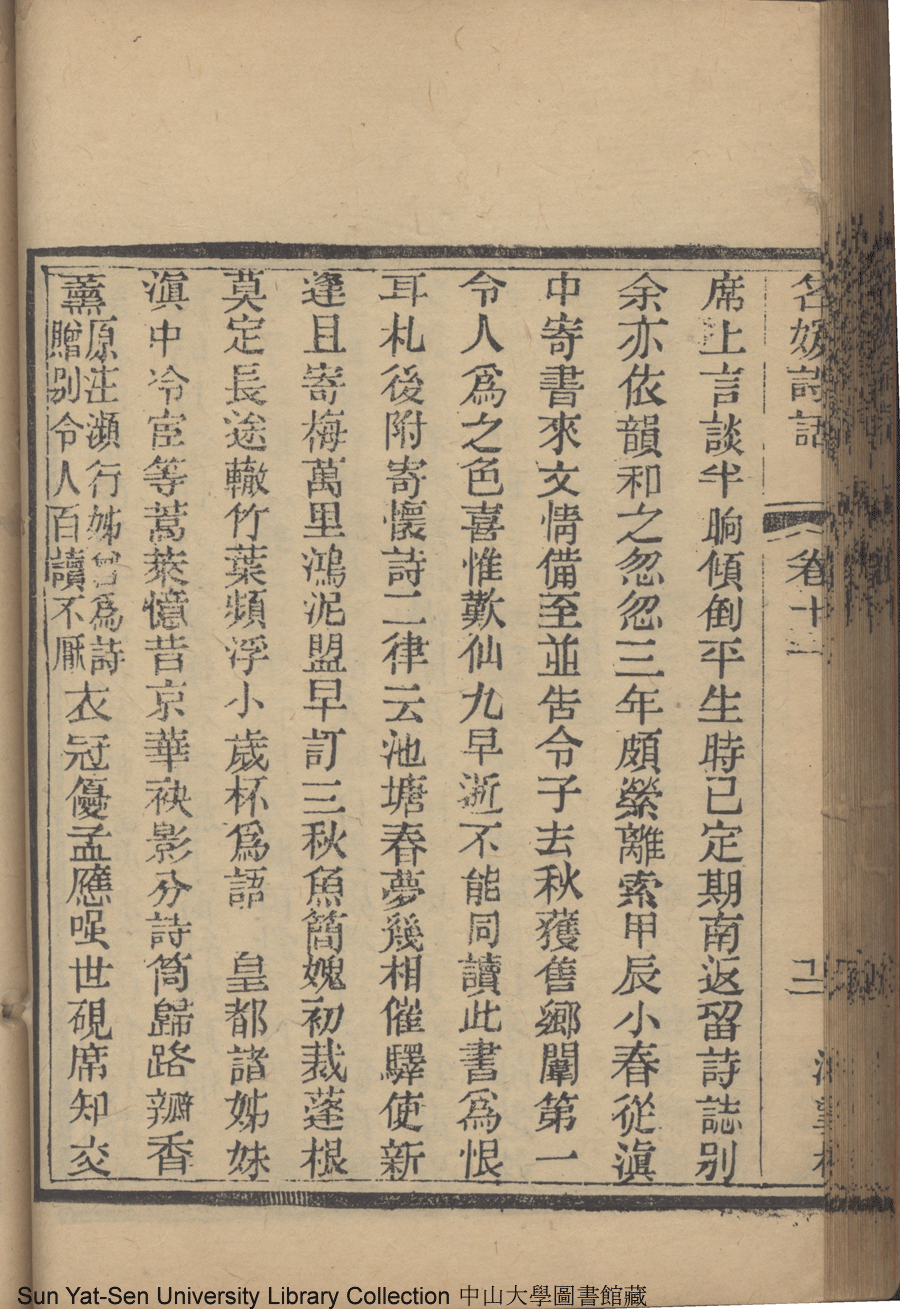 名媛詩話 卷十一
席上言談半晌傾倒平生時已定期南返留詩誌别
余亦依韻和之忽忽三年頗縈離索甲辰小春從滇
中寄書來文情備至並告令子去秋獲售鄉闈第一
令人爲之色喜惟歎仙九早逝不能同讀此書爲恨
耳札後附寄懷詩二律云池塘春夢幾相催驛使新
逢且寄梅萬里鴻泥盟早訂三秋魚簡媿初裁蓬根
莫定長途轍竹葉頻浮小歲杯爲語 皇都諸姊妹
滇中冷宦等蒿萊憶昔京華袂影分詩筒歸路瓣香
薰原注瀕行姊曾爲詩贈别令人百讀不厭衣冠優孟應嗤世硯席知交
Sun Yat-Sen University Library Collection 中山大學圖書館藏